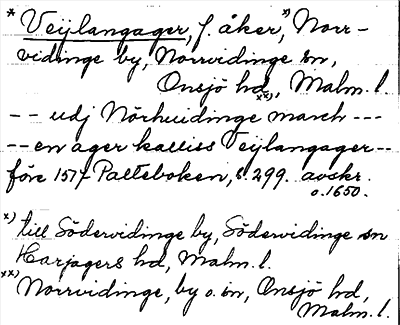 * Vejlangager, f. åker,x) Norr-
vidinge by, Norrvidinge sn,
Onsjö hd,xx) Malm. l.
-- udj Nörhuidinge march ---
-- en ager kalliss Vejlangager --
före 157 Palteboken, s. 299. avskr.
o. 1650.
x) till Södervidinge by, Södervidinge sn
Harjagers hd, Malm. l.
xx) Norrvidinge, by o. sn, Onsjö hd,
Malm. l.